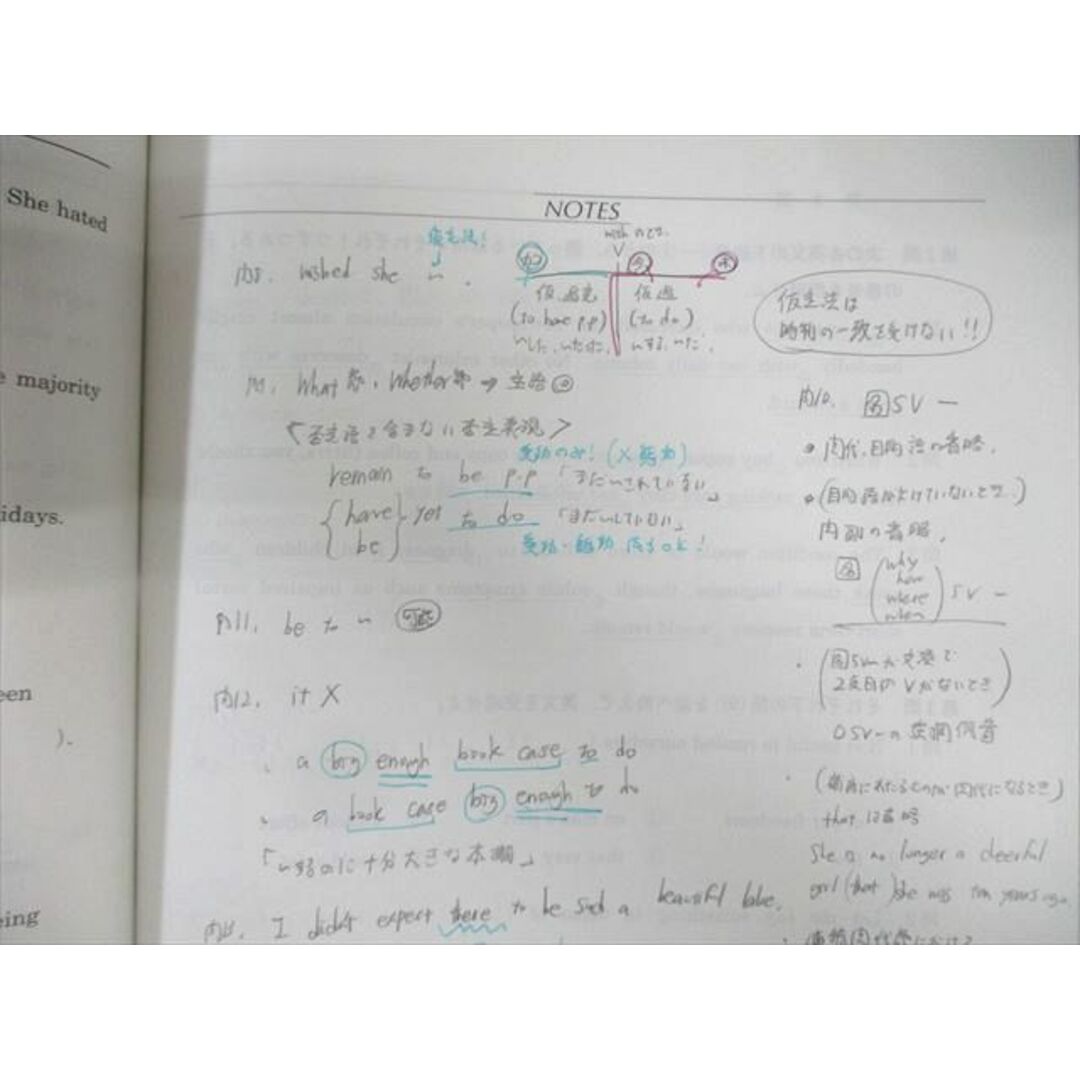 She hated
majority
idays.
een
).
eing
NOTES
wishのとき
仮定法!
wished she 〜 .
カコ
今
未
仮.過完
仮過
(to have p.p)
(to do)
〜した, 〜だった,
〜する, 〜だ,
仮定法は
時制の一致を受けない!!
What 節, Whether節 → 主語
<否定語を含まない否定表現>
受動のみ! (X能動)
remain to be p.p 「まだ〜されていない」
have
be
yet to do 「まだ〜していない」
受動・能動 両方OK!
内11. be to 〜 可能
内12. it X
. a big enough book case to do
. a book case big enough to do
「〜するのに十分大きな本棚」
I didn't expect there to be such a beautiful lake.
内10. 名SV ―
関代, 目的語の省略.
(目的語が欠けていないとき.)
関副の省略,
名
why
how
where
when
SV ―
. (名SVが文頭で
2度目のVがないとき)
OSV〜の
. (補語にあたるものが関代になるとき)
thatは省略
She is no longer a cheerful
girl (that) she was ten years ago.